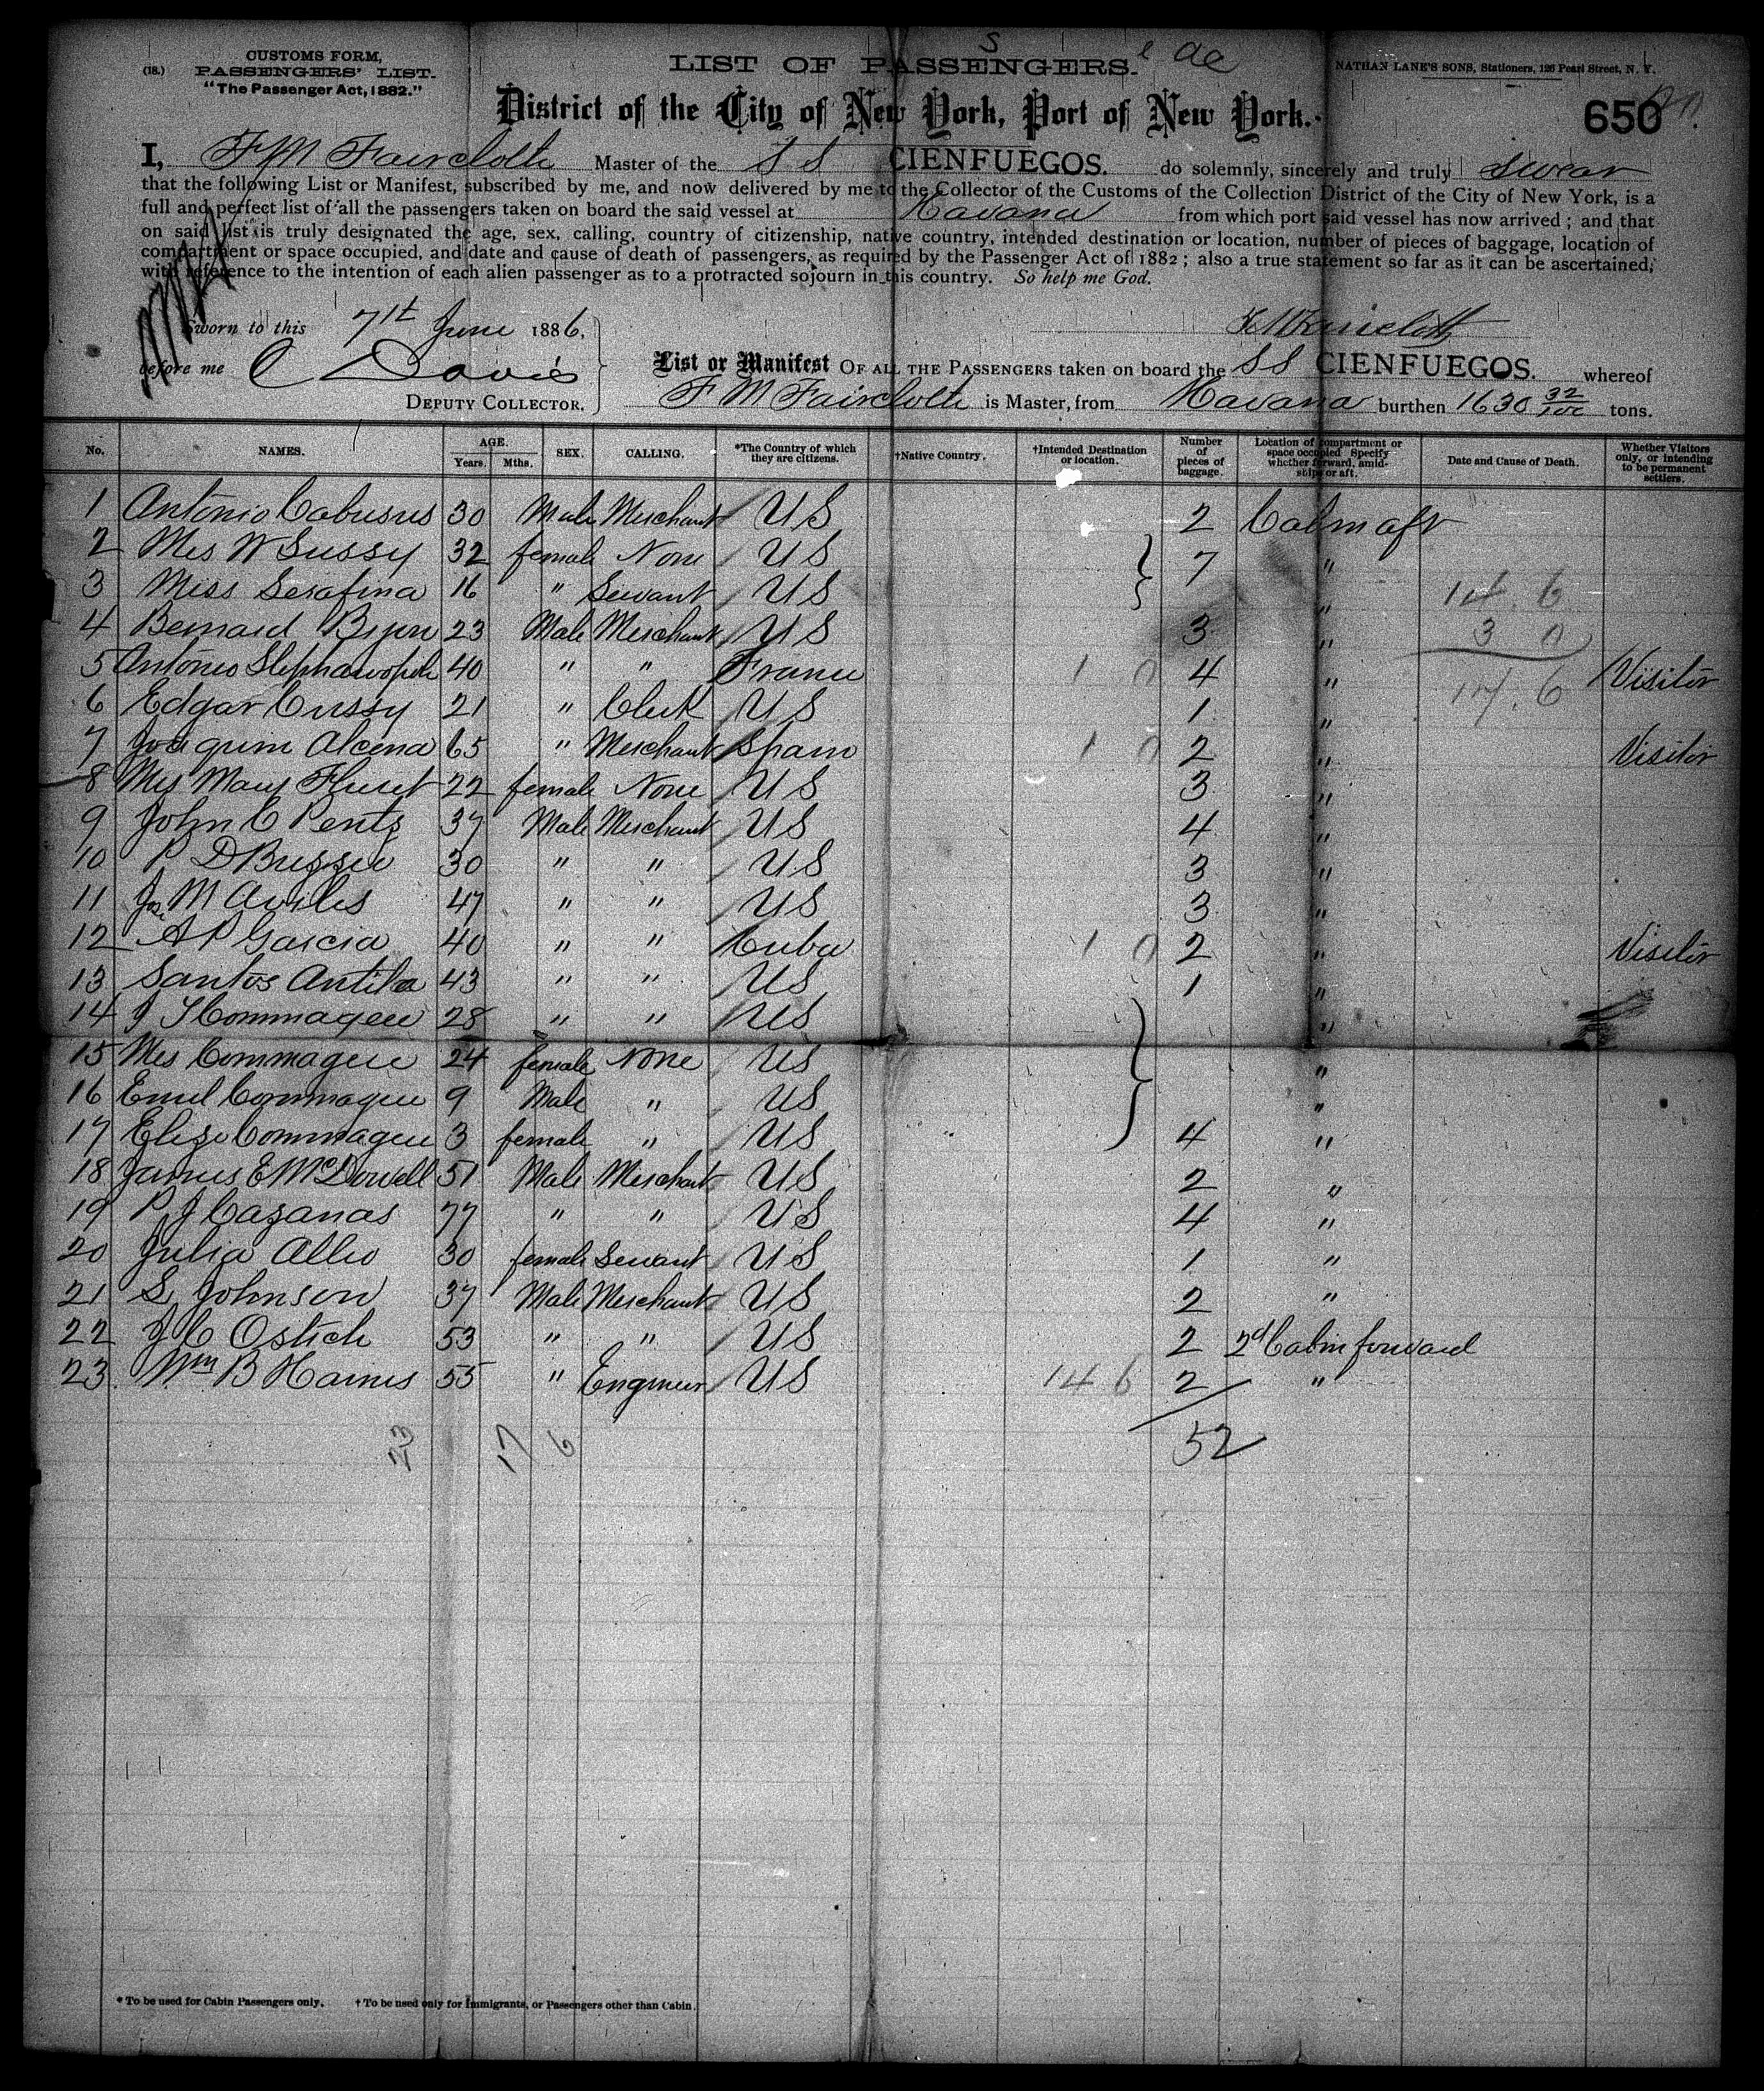 CUSTOMS FORM,
(18.) PASSENGERS' LIST.
"The Passenger Act, 1882."
LIST OF PASSENGERS.
NATHAN LANE'S SONS, Stationers, 126 Pearl Street, N. Y.
District of the City of New York, Port of New York.
650
I, F M Faircloth Master of the S S CIENFUEGOS. do solemnly, sincerely and truly swear
that the following List or Manifest, subscribed by me, and now delivered by me to the Collector of the Customs of the Collection District of the City of New York, is a
full and perfect list of all the passengers taken on board the said vessel at Havana from which port said vessel has now arrived; and that
on said list is truly designated the age, sex, calling, country of citizenship, native country, intended destination or location, number of pieces of baggage, location of
compartment or space occupied, and date and cause of death of passengers, as required by the Passenger Act of 1882; also a true statement so far as it can be ascertained,
with reference to the intention of each alien passenger as to a protracted sojourn in this country. So help me God.
Sworn to this 7th June 1886,
F M Faircloth
before me C Davis
DEPUTY COLLECTOR.
List or Manifest OF ALL THE PASSENGERS taken on board the SS CIENFUEGOS. whereof
F M Faircloth is Master, from Havana burthen 1630 32/100 tons.
No. NAMES. AGE. Years. Mths. SEX. CALLING. *The Country of which they are citizens. †Native Country. †Intended Destination or location. Number of pieces of baggage. Location of compartment or space occupied Specify whether forward, amidships or aft. Date and Cause of Death. Whether Visitors only, or intending to be permanent settlers.
1 Antonio 30 Male Merchant US 2 Cabin aft
2 Mrs W Sussy 32 female None US 7 "
3 Miss Serafina 16 " Servant US " 14.6
4 Bernard 23 Male Merchant US 3 " 3 0
5 Antonio 40 " " France 1 0 4 " 17.6 Visitor
6 Edgar Cussy 21 " Clerk US 1 "
7 Joaquim Alcena 65 " Merchant Spain 1 0 2 " Visitor
8 Mrs Mary 22 female None US 3 "
9 John C Pentz 37 Male Merchant US 4 "
10 P D 30 " " US 3 "
11 Jose M Aviles 47 " " US 3 "
12 A P Garcia 40 " " Cuba 1 0 2 " Visitor
13 Santos Antilea 43 " " US 1 "
14 J Commagere 28 " " US "
15 Mrs Commagere 24 female None US "
16 Emil Commagere 9 Male " US "
17 Elize Commagere 3 female " US 4 "
18 James E McDowell 51 Male Merchant US 2 "
19 P J Cazanas 77 " " US 4 "
20 Julia Allio 30 female Servant US 1 "
21 S Johnson 37 Male Merchant US 2 "
22 J C Ostich 53 " " US 2 2d Cabin forward
23 Wm B Haines 55 " Engineer US 14 6 2 "
23 17 6 52
* To be used for Cabin Passengers only. † To be used only for Immigrants, or Passengers other than Cabin.